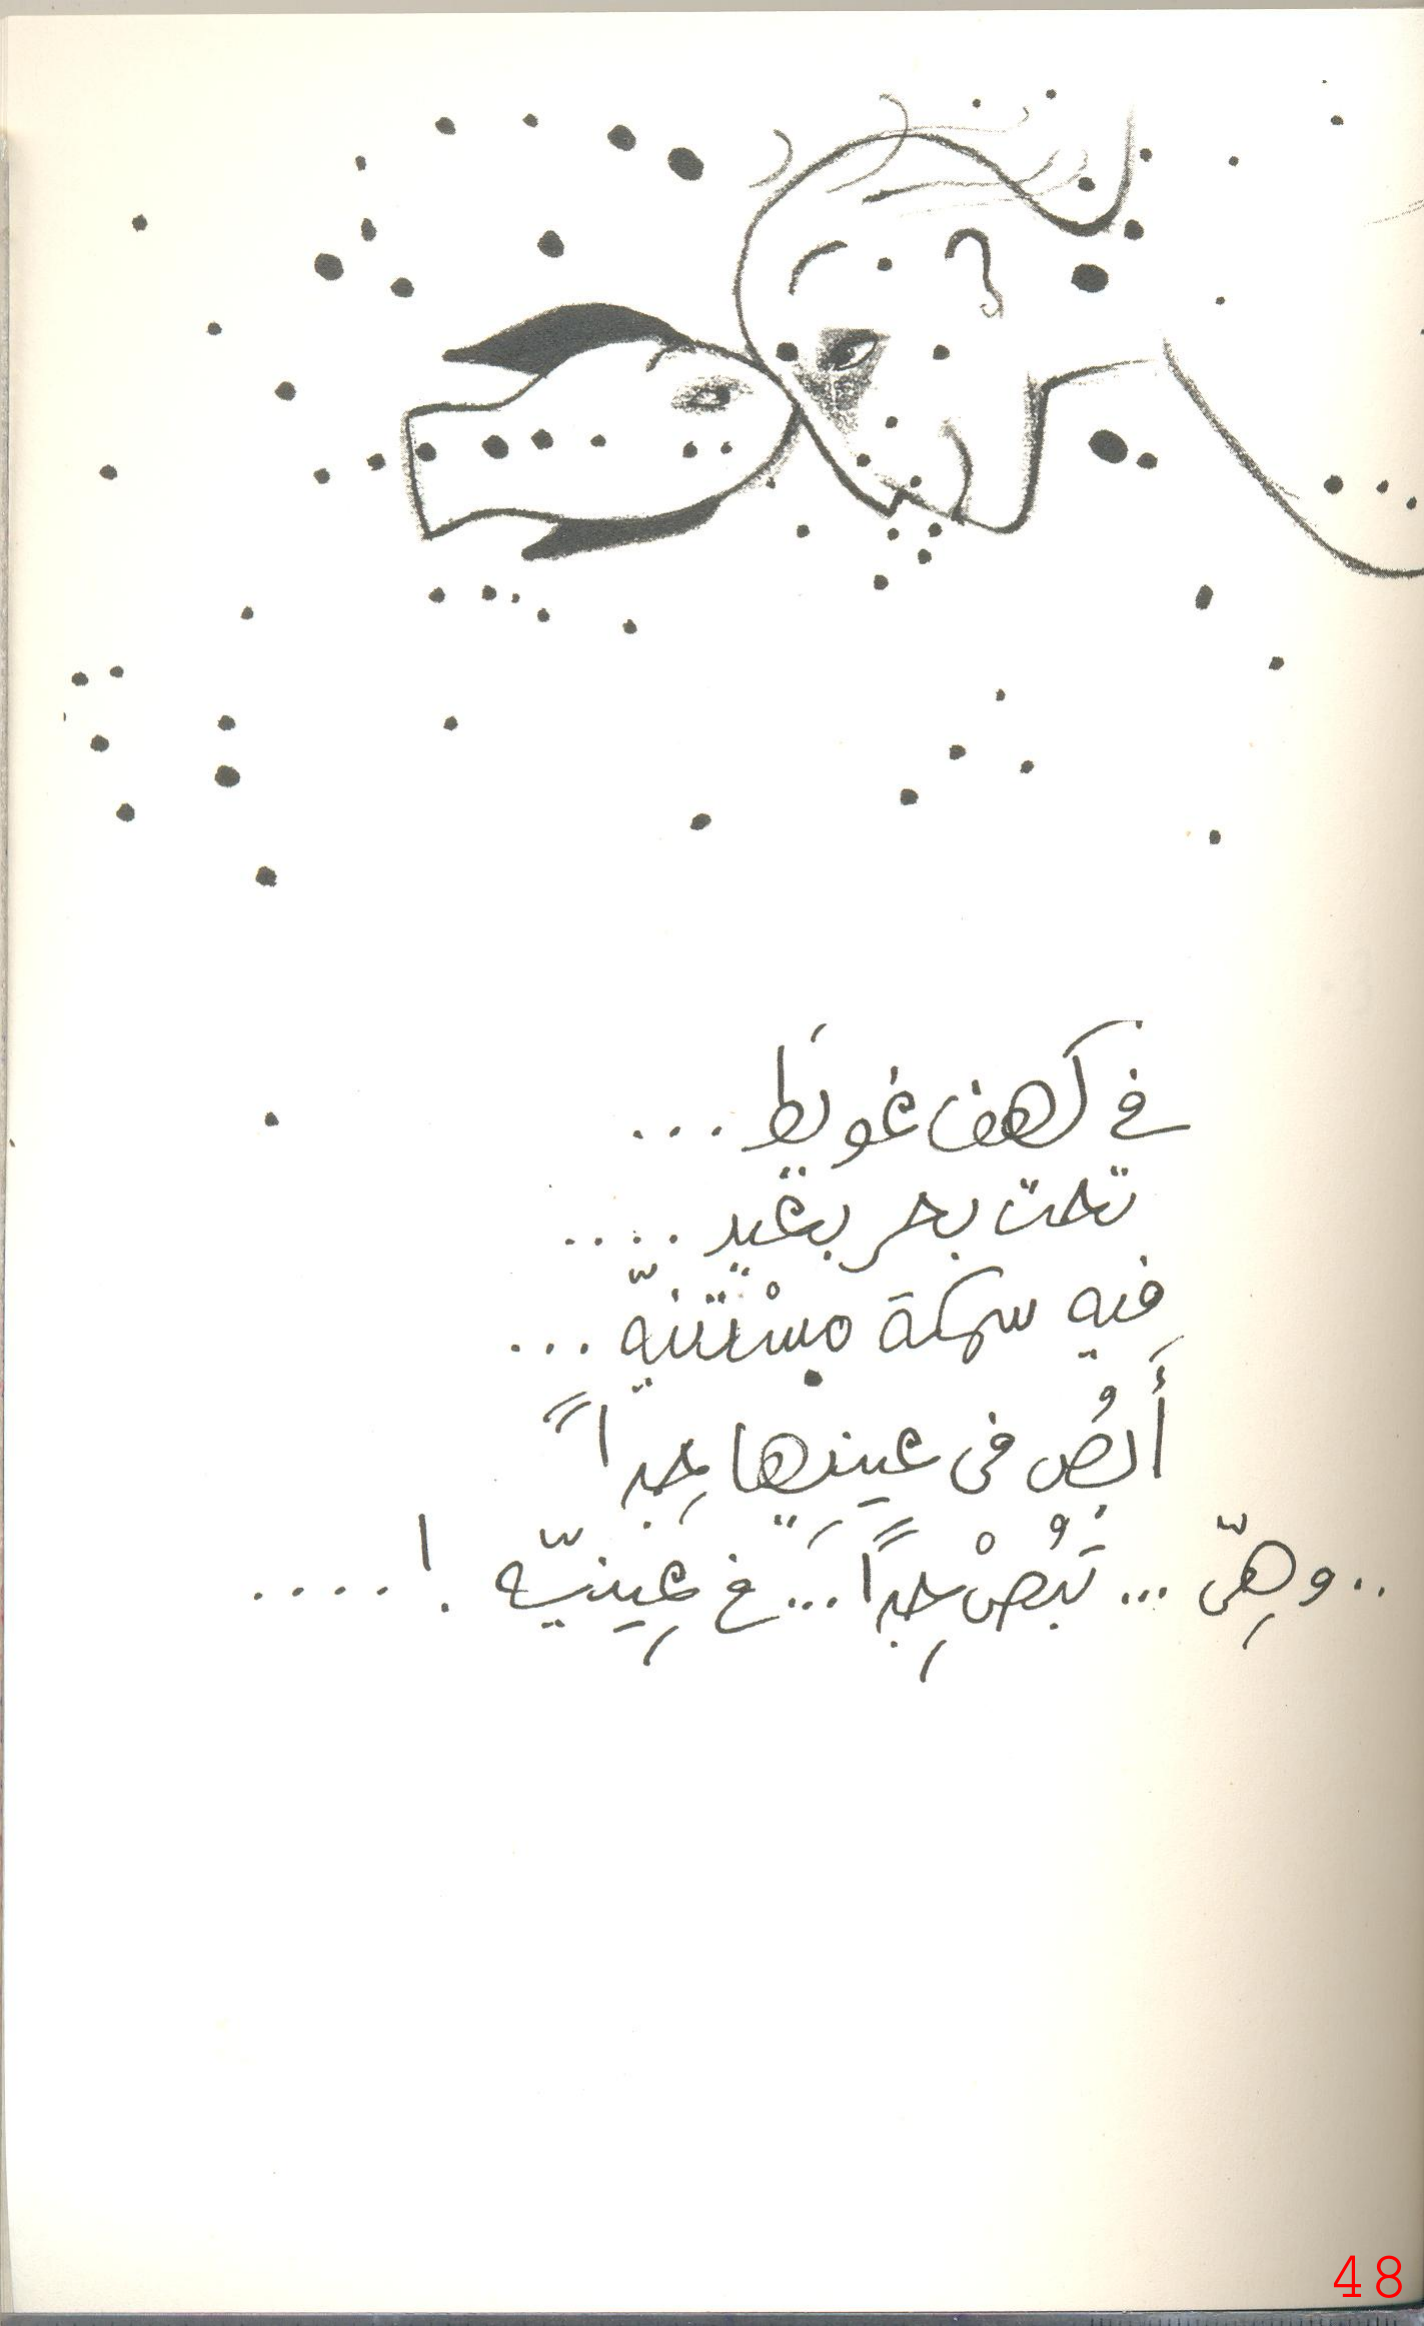 في كهف غويط ...
تحت بحر بعيد ....
فيه سمكة مِسْتَنيّة ...
أَبُص في عينيها جِداً
.. وهِيّ ... تبُصْ جِداً ... في عِينيّه ! ....
48